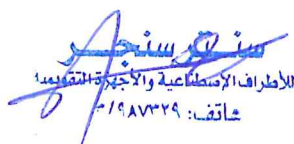 سنتر سنجر
للأطراف الإصطناعية والأجهزة التقويمية
هاتف: ٠٣/٩٨٧٣٢٩